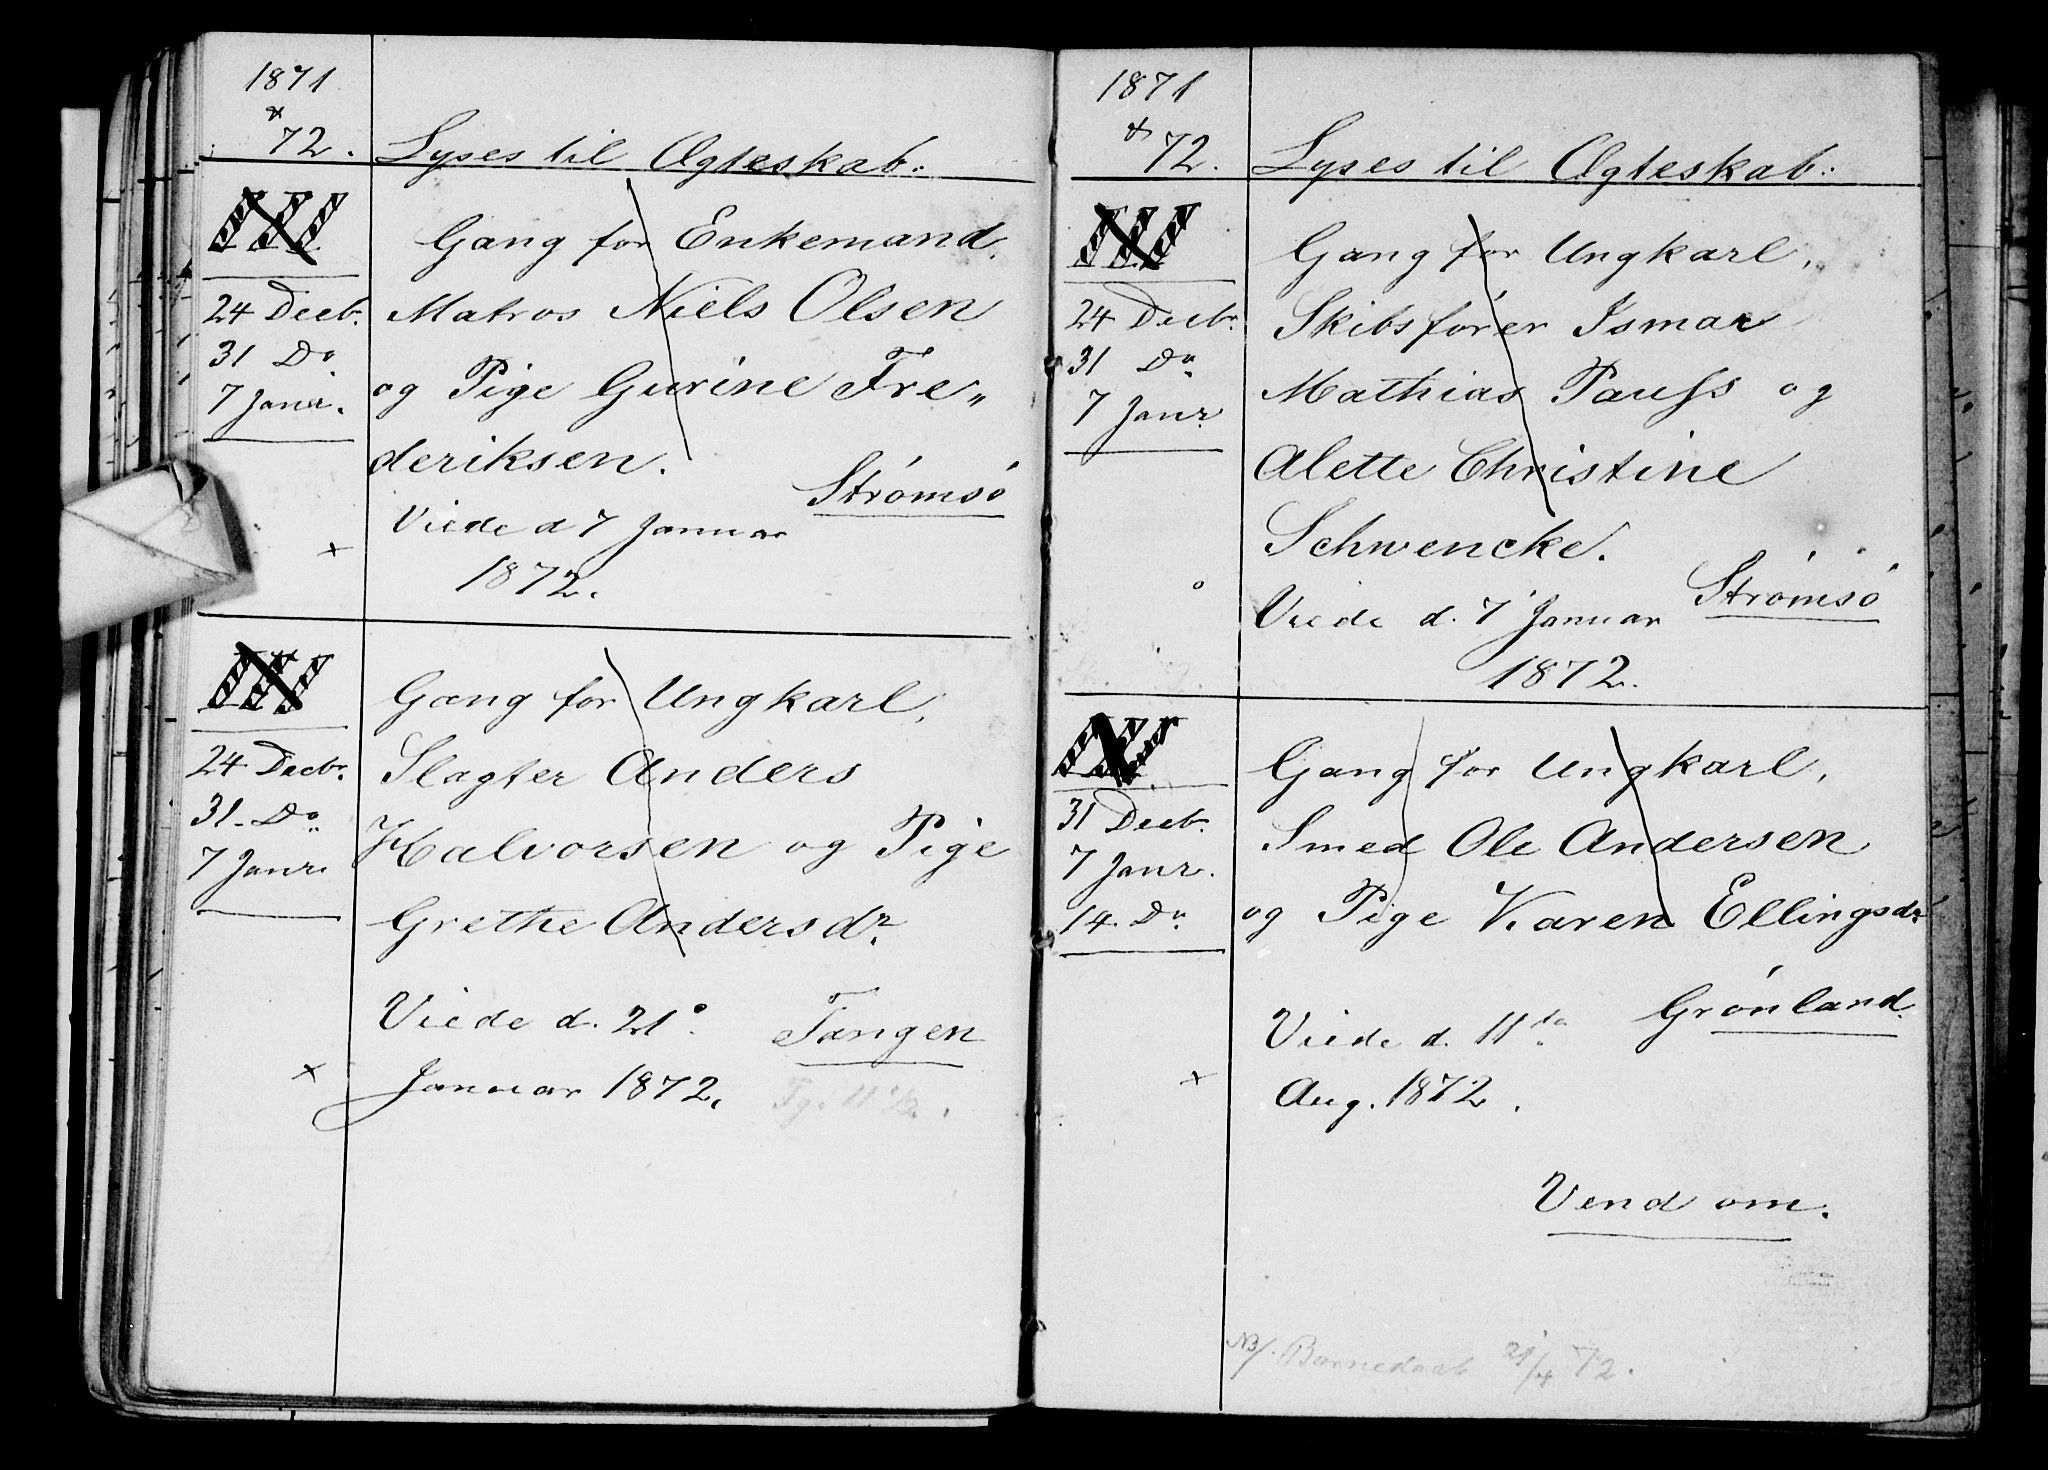 1871
&
72. Lyses til Ægteskab:
Gang for Enkemand,
24 Decbr. Matros Niels Olsen
31 Do
og Pige Gurine Fre„
7 Janr.
deriksen.
Strømsö
Viede d 7 Januar
+
1872.
Gang for Ungkarl,
24 Decbr. Slagter Anders
31. Do
Halvorsen og Pige
7 Janr.
Grethe Andersdr.
Viede d. 21.
Tangen
+ Januar 1872.
1871
&
72. Lyses til Ægteskab:
Gang for Ungkarl,
24 Decbr. Skibsfører Ismar
31 Do
Mathias Pauss og
7 Janr.
Alette Christine
Schwencke.
Strømsö
Viede d. 7 Januar
1872.
Gang for Ungkarl,
31 Decbr. Smed Ole Andersen
7 Janr.
14. Do og Pige Karen Ellingsdr.
Grønland.
Viede d. 11te
+ Aug. 1872.
Vend om.
NB/. Barnedaab 21/4 72.